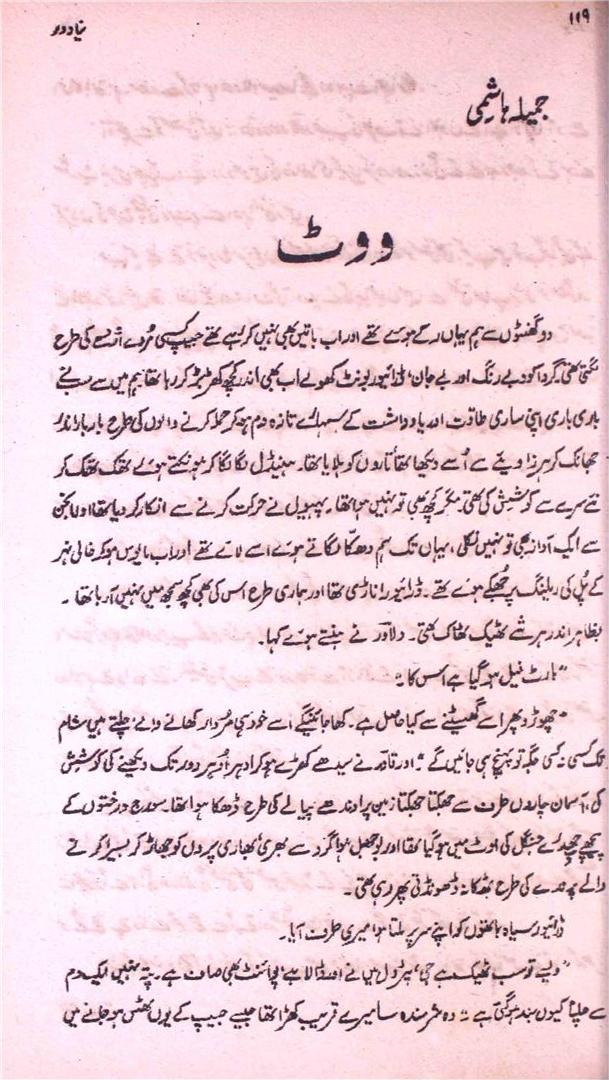 ۱۱۹
نیا دور
جمیلہ ہاشمی
ووٹ
دو گھنٹوں سے ہم یہاں رکے ہوئے تھے اور اب باتیں بھی نہیں کر رہے تھے جیپ کسی مُردے اژدہے کی طرح
لگتی تھی۔ گرد آلود بے رنگ اور بے جان، ڈرائیور بونٹ کھولے اب بھی اندر کچھ کھڑپڑ کر رہا تھا ہم میں سے سب نے
باری باری اپنی ساری طاقت اور یادداشت کے سہارے تازہ دم ہو کر حملہ کرنے والوں کی طرح بار بار اندر
جھانک کر ہر زاویئے سے اُسے دیکھا تھا تاروں کو ہلایا تھا۔ ہینڈل لگا لگا کر ہونکتے ہوئے تھک تھک کر
نئے سرے سے کوشش کی تھی مگر کچھ بھی تو نہیں ہوا تھا۔ پہیوں نے حرکت کرنے سے انکار کر دیا تھا اور انجن
سے ایک آواز بھی تو نہیں نکلی، یہاں تک ہم دھکا لگاتے ہوئے اسے لائے تھے اور اب مایوس ہو کر خالی نہر
کے پُل کی ریلنگ پر جھکے ہوئے تھے۔ ڈرائیور اناڑی تھا اور ہماری طرح اس کی بھی کچھ سمجھ میں نہیں آ رہا تھا۔
بظاہر اندر ہر شے ٹھیک ٹھاک تھی۔ دلاور نے ہنستے ہوئے کہا۔
"ہارٹ فیل ہو گیا ہے اس کا۔"
"چھوڑو پھر اسے گھسیٹنے سے کیا حاصل ہے۔ کھا جائینگے اسے خود ہی مُردار کھانے والے، چلتے ہیں شام
تک کسی نہ کسی جگہ تو پہنچ ہی جائیں گے۔" اور قادر نے سیدھے کھڑے ہو کر ادہر اُدہر دور تک دیکھنے کی کوشش
کی، آسمان چاروں طرف سے جھکتا جھکتا زمین پر اوندھے پیالے کی طرح ڈھکا ہوا تھا۔ سورج درختوں کے
پیچھے چھدرے جنگل کی اوٹ میں ہو گیا تھا اور بوجھل ہوا گرد سے بھری، بھاری پروں کو جھاڑ کر بسیرا کرنے
والے پرندے کی طرح ٹھکانہ ڈھونڈتی پھر رہی تھی۔
ڈرائیور سیاہ ہاتھوں کو اپنے سر پر ملتا ہوا میری طرف آیا۔
"ویسے تو سب ٹھیک ہے جی، پٹرول میں نے اور ڈالا ہے، پوائنٹ بھی صاف ہے۔ پتہ نہیں ایک دم
سے چلنا کیوں بند ہو گئی ہے۔" وہ شرمندہ سا میرے قریب کھڑا تھا جیسے جیپ کے یوں ٹھس ہو جانے میں